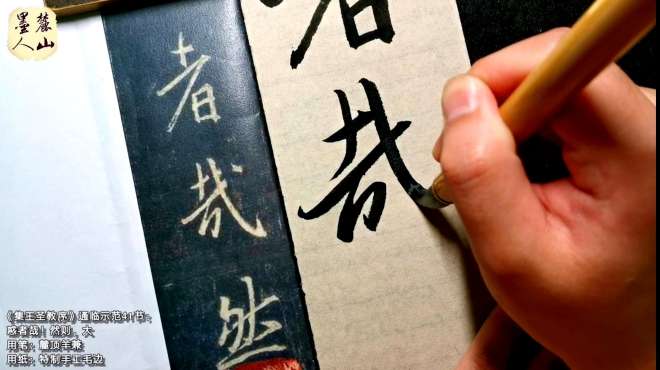 麓山
墨人
者
哉
然
者
哉
《集王圣教序》通临示范41节：
惑者哉！然则，大
用笔：麓顶羊兼
用纸：特制手工毛边